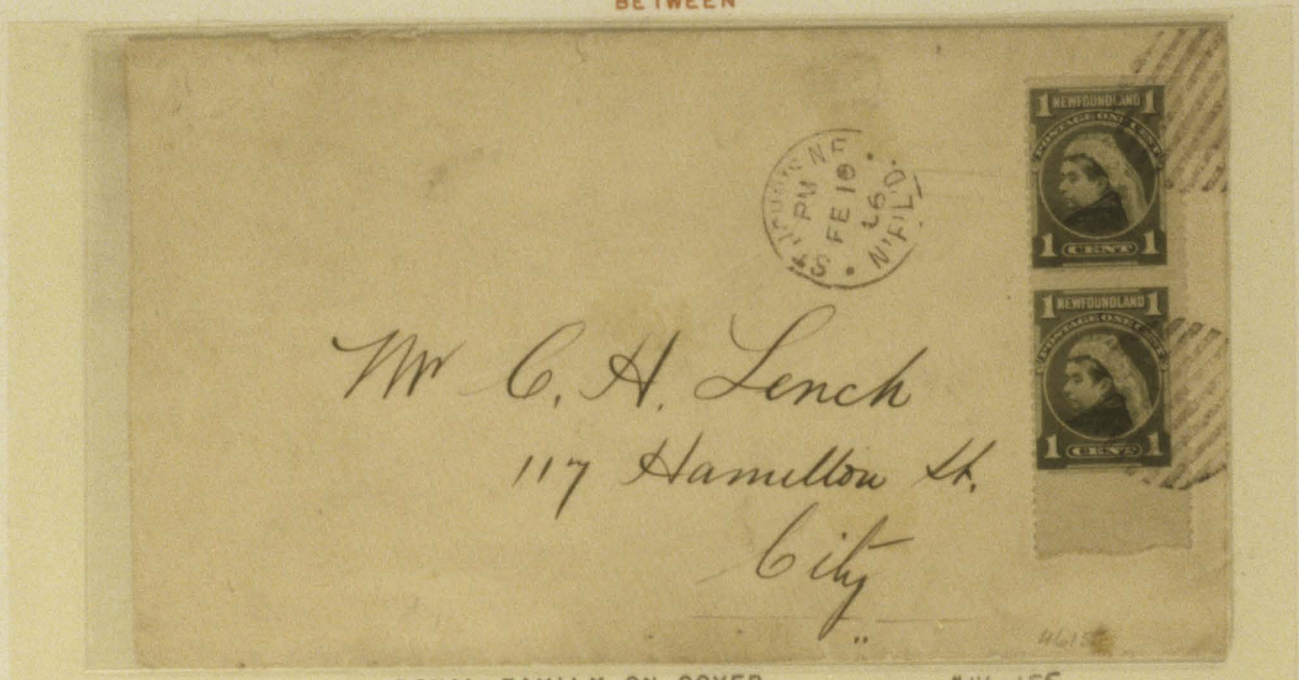 BETWEEN
1 NEWFOUNDLAND 1
POSTAGE ONE CENT
1 CENT 1
ST. JOHN'S NF
PM
FE 10
N'F'L'D.
1 NEWFOUNDLAND 1
POSTAGE ONE CENT
1 CENT 1
Mr C. H. Lench
117 Hamilton St.
City
FAMILY ON COVER